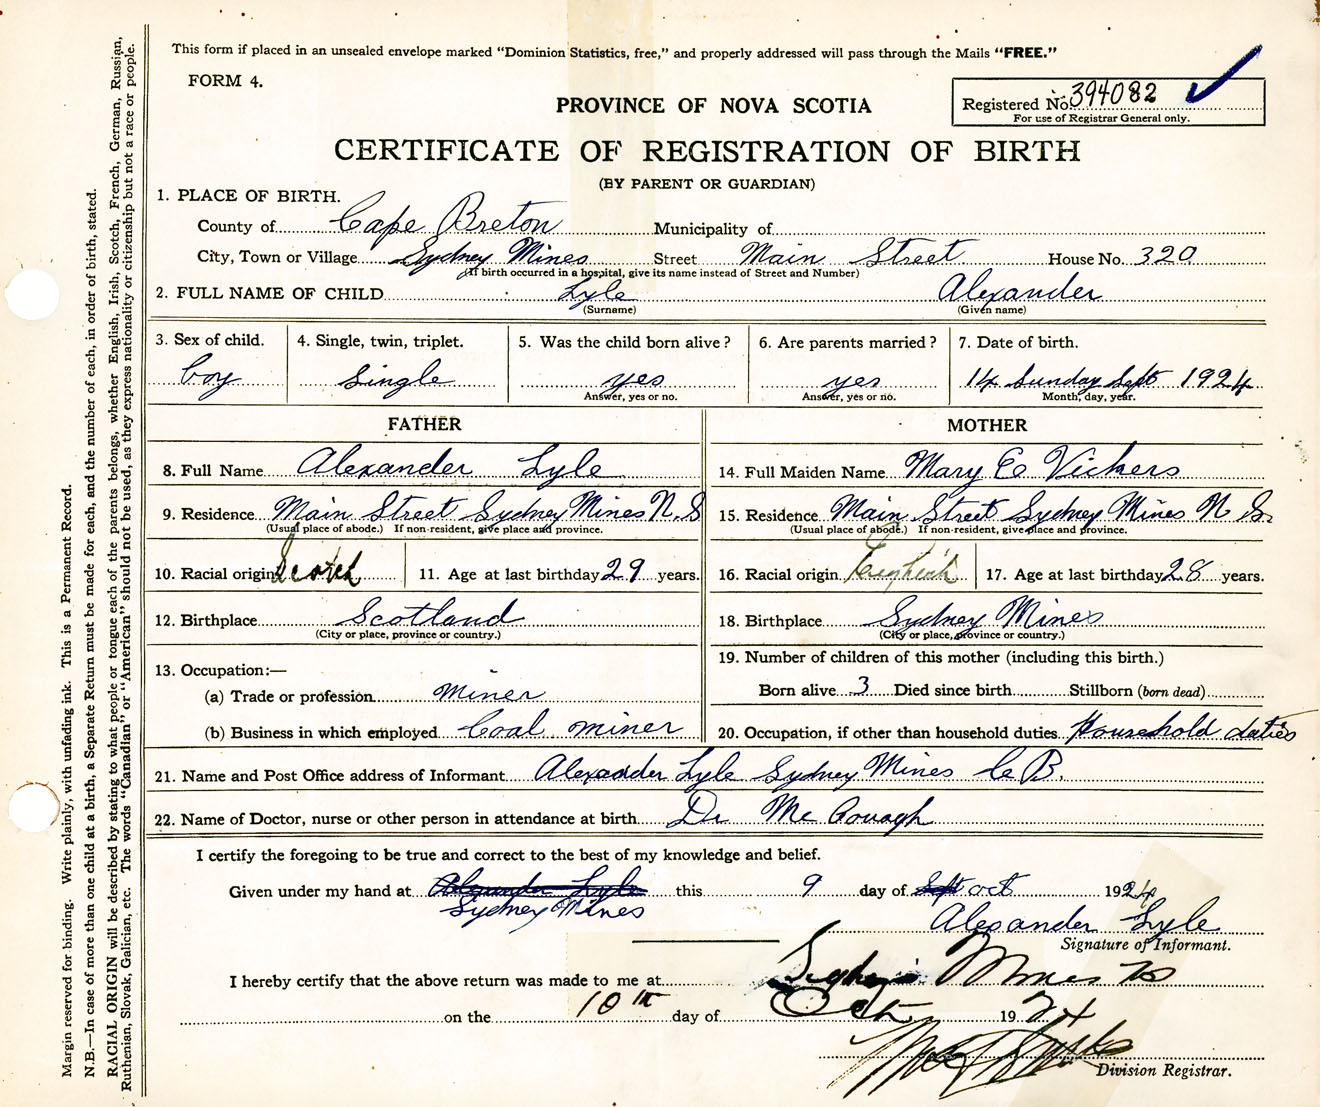 This form if placed in an unsealed envelope marked "Dominion Statistics, free," and properly addressed will pass through the Mails "FREE."
FORM 4.
Registered No. 394082
For use of Registrar General only.
PROVINCE OF NOVA SCOTIA
CERTIFICATE OF REGISTRATION OF BIRTH
(BY PARENT OR GUARDIAN)
1. PLACE OF BIRTH.
County of Cape Breton Municipality of
City, Town or Village Sydney Mines Street Main Street House No. 320
(If birth occurred in a hospital, give its name instead of Street and Number)
2. FULL NAME OF CHILD Lyle Alexander
(Surname) (Given name)
3. Sex of child. 4. Single, twin, triplet. 5. Was the child born alive? 6. Are parents married? 7. Date of birth.
boy single yes yes 14 Sunday Sept 1924
Answer, yes or no. Answer, yes or no. Month, day, year.
FATHER MOTHER
8. Full Name Alexander Lyle 14. Full Maiden Name Mary E Vickers
9. Residence Main Street Sydney Mines N. S 15. Residence Main Street Sydney Mines N S.
(Usual place of abode.) If non-resident, give place and province. (Usual place of abode.) If non-resident, give place and province.
10. Racial origin Scotch 11. Age at last birthday 29 years. 16. Racial origin 17. Age at last birthday 28 years.
12. Birthplace Scotland 18. Birthplace Sydney Mines
(City or place, province or country.) (City or place, province or country.)
13. Occupation:— 19. Number of children of this mother (including this birth.)
(a) Trade or profession Miner Born alive 3 Died since birth Stillborn (born dead)
(b) Business in which employed Coal miner 20. Occupation, if other than household duties Household duties
21. Name and Post Office address of Informant Alexander Lyle Sydney Mines C.B.
22. Name of Doctor, nurse or other person in attendance at birth Dr
I certify the foregoing to be true and correct to the best of my knowledge and belief.
Given under my hand at Alexander Lyle this 9 day of Sept oct 1924
Sydney Mines Alexander Lyle
Signature of Informant.
I hereby certify that the above return was made to me at Sydney Mines
on the 10th day of Oct 1924
Division Registrar.
Margin reserved for binding. Write plainly, with unfading ink. This is a Permanent Record.
N.B.—In case of more than one child at a birth, a Separate Return must be made for each, and the number of each, in order of birth, stated.
RACIAL ORIGIN will be described by stating to what people or tongue each of the parents belongs, whether English, Irish, Scotch, French, German, Russian,
Ruthenian, Slovak, Galician, etc. The words "Canadian" or "American" should not be used, as they express nationality or citizenship but not a race or people.